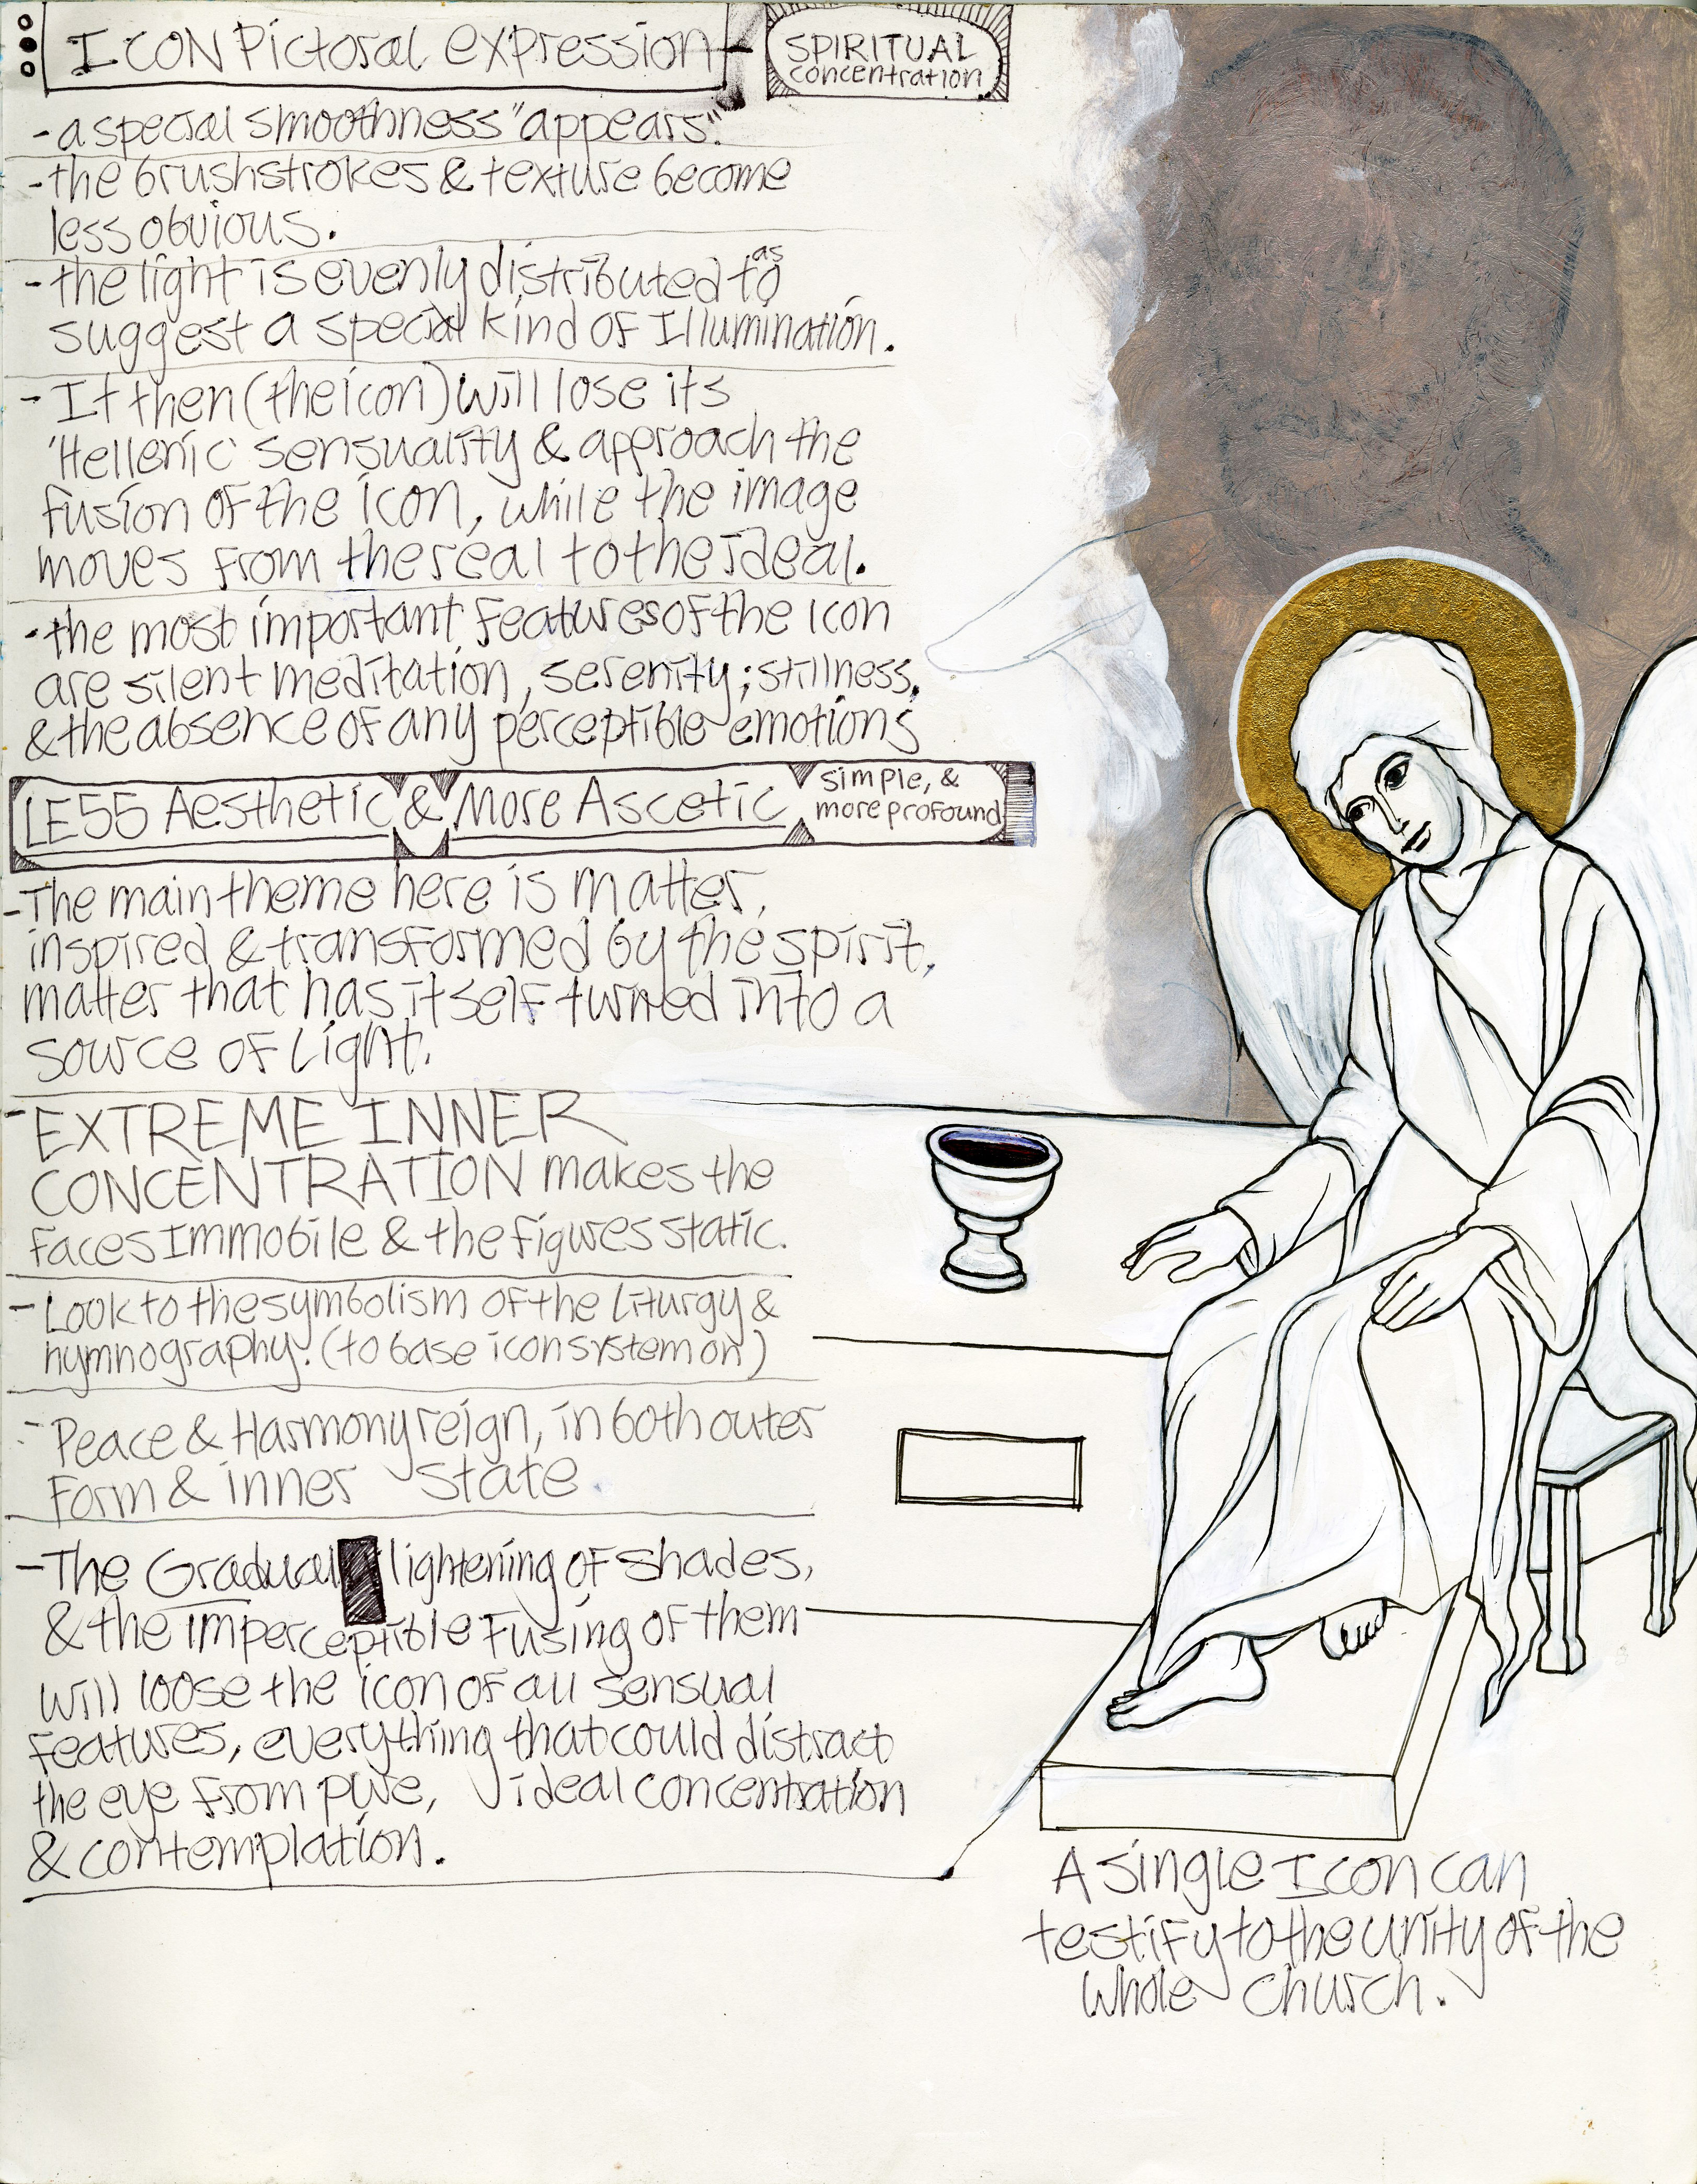 ICON Pictoral expression
SPIRITUAL
concentration
- a special smoothness "appears."
- the brushstrokes & texture become
less obvious.
- the light is evenly distributed as to
suggest a special kind of Illumination.
- It then (the icon) will lose its
'Hellenic' sensuality & approach the
fusion of the icon, while the image
moves from the real to the ideal.
- the most important features of the icon
are silent meditation, serenity; stillness,
& the absence of any perceptible emotions
LESS Aesthetic & More Ascetic
simple, &
more profound
- The main theme here is matter,
inspired & transformed by the spirit,
matter that has itself turned into a
source of Light.
- EXTREME INNER
CONCENTRATION makes the
faces Immobile & the figures static.
- Look to the symbolism of the Liturgy &
hymnography. (to base icon system on)
- Peace & Harmony reign, in both outer
Form & inner state
- The Gradual lightening of shades,
& the imperceptible Fusing of them
will loose the icon of all sensual
features, everything that could distract
the eye from pure, ideal concentration
& contemplation.
A single Icon can
testify to the unity of the
whole church.